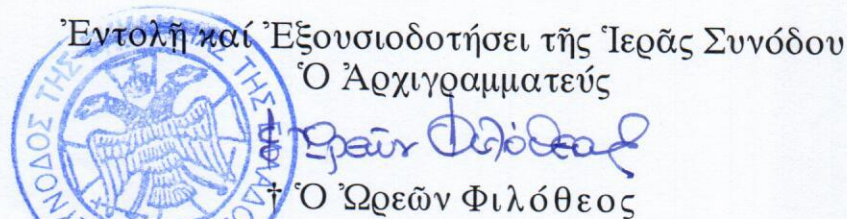 Ἐντολῇ καί Ἐξουσιοδοτήσει τῆς Ἱερᾶς Συνόδου
Ὁ Ἀρχιγραμματεύς
† Ὠρεῶν Φιλόθεος
† Ὁ Ὠρεῶν Φιλόθεος
ΣΥΝΟΔΟΣ ΤΗΣ ΤΗΣ ΕΛΛΑΔΟΣ